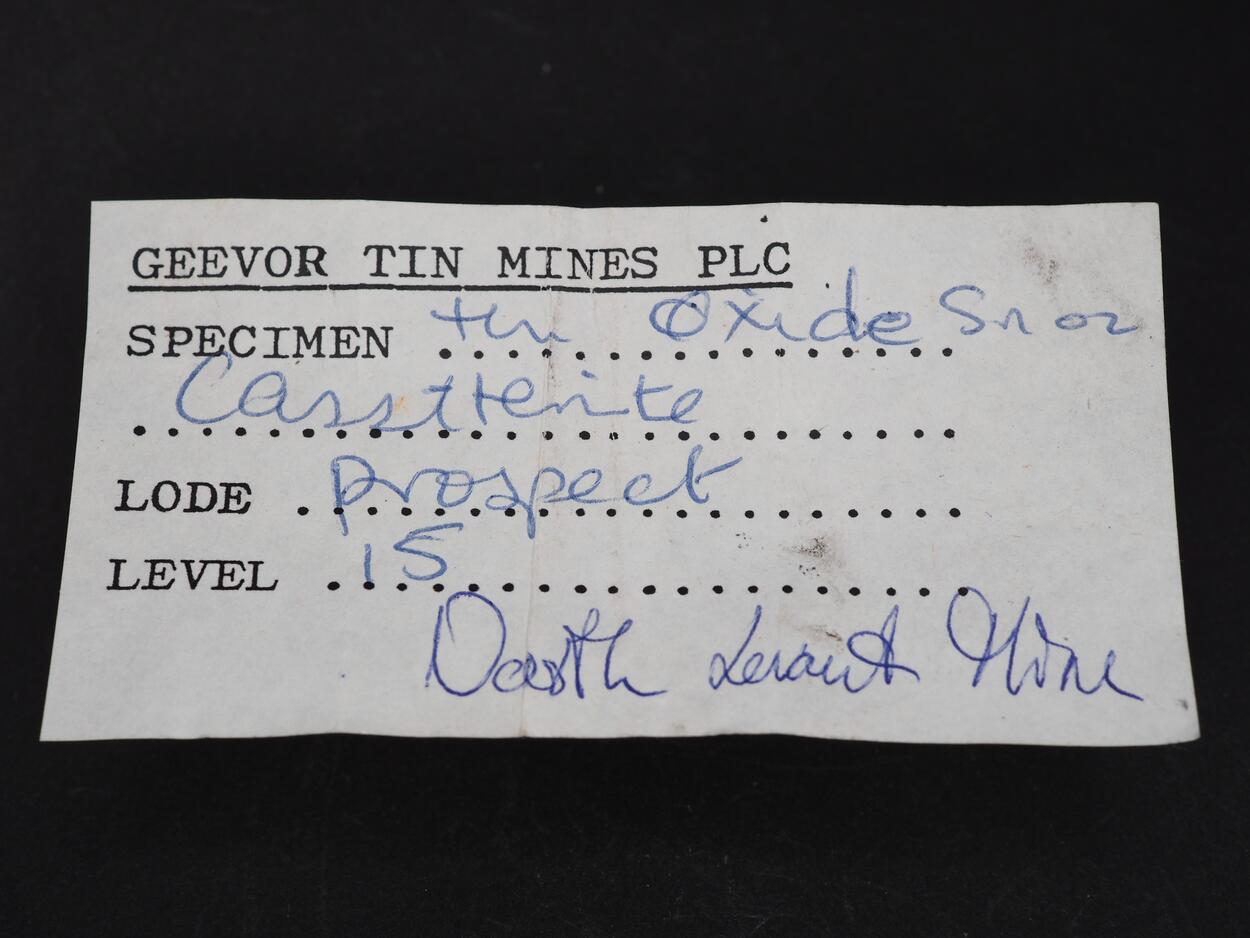 GEEVOR TIN MINES PLC
SPECIMEN tin Oxide Sn O2
Cassiterite
LODE prospect
LEVEL 15
Levant Mine